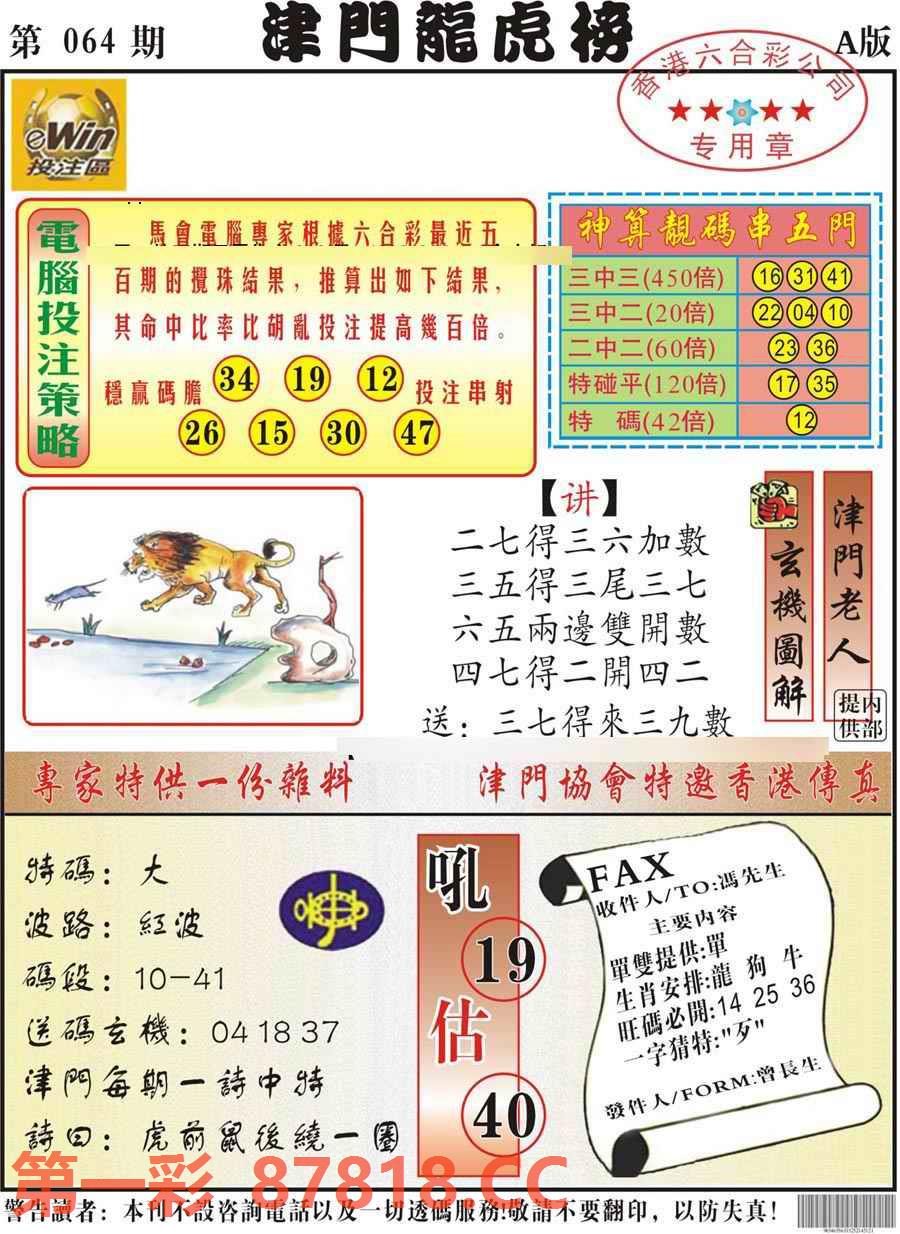 第 064 期
津門龍虎榜
A版
香港六合彩公司
专用章
eWin
投注區
電腦投注策略
馬會電腦專家根據六合彩最近五
百期的攪珠結果，推算出如下結果，
其命中比率比胡亂投注提高幾百倍。
穩贏碼膽 34 19 12 投注串射
26 15 30 47
神算靚碼串五門
三中三(450倍) 16 31 41
三中二(20倍) 22 04 10
二中二(60倍) 23 36
特碰平(120倍) 17 35
特 碼(42倍) 12
【讲】
二七得三六加數
三五得三尾三七
六五兩邊雙開數
四七得二開四二
送：三七得來三九數
玄機圖解
津門老人
內部提供
專家特供一份雜料
津門協會特邀香港傳真
特碼：大
波路：紅波
碼段：10-41
送碼玄機：04 18 37
津門每期一詩中特
詩曰：虎前鼠後繞一圈
吼
19
估
40
FAX
收件人/TO:馮先生
主要内容
單雙提供:單
生肖安排:龍 狗 牛
旺碼必開:14 25 36
一字猜特:"歹"
發件人/FORM:曾長生
第一彩 87818.CC
警告讀者：本刊不設咨詢電話以及一切透碼服務!敬請不要翻印，以防失真!